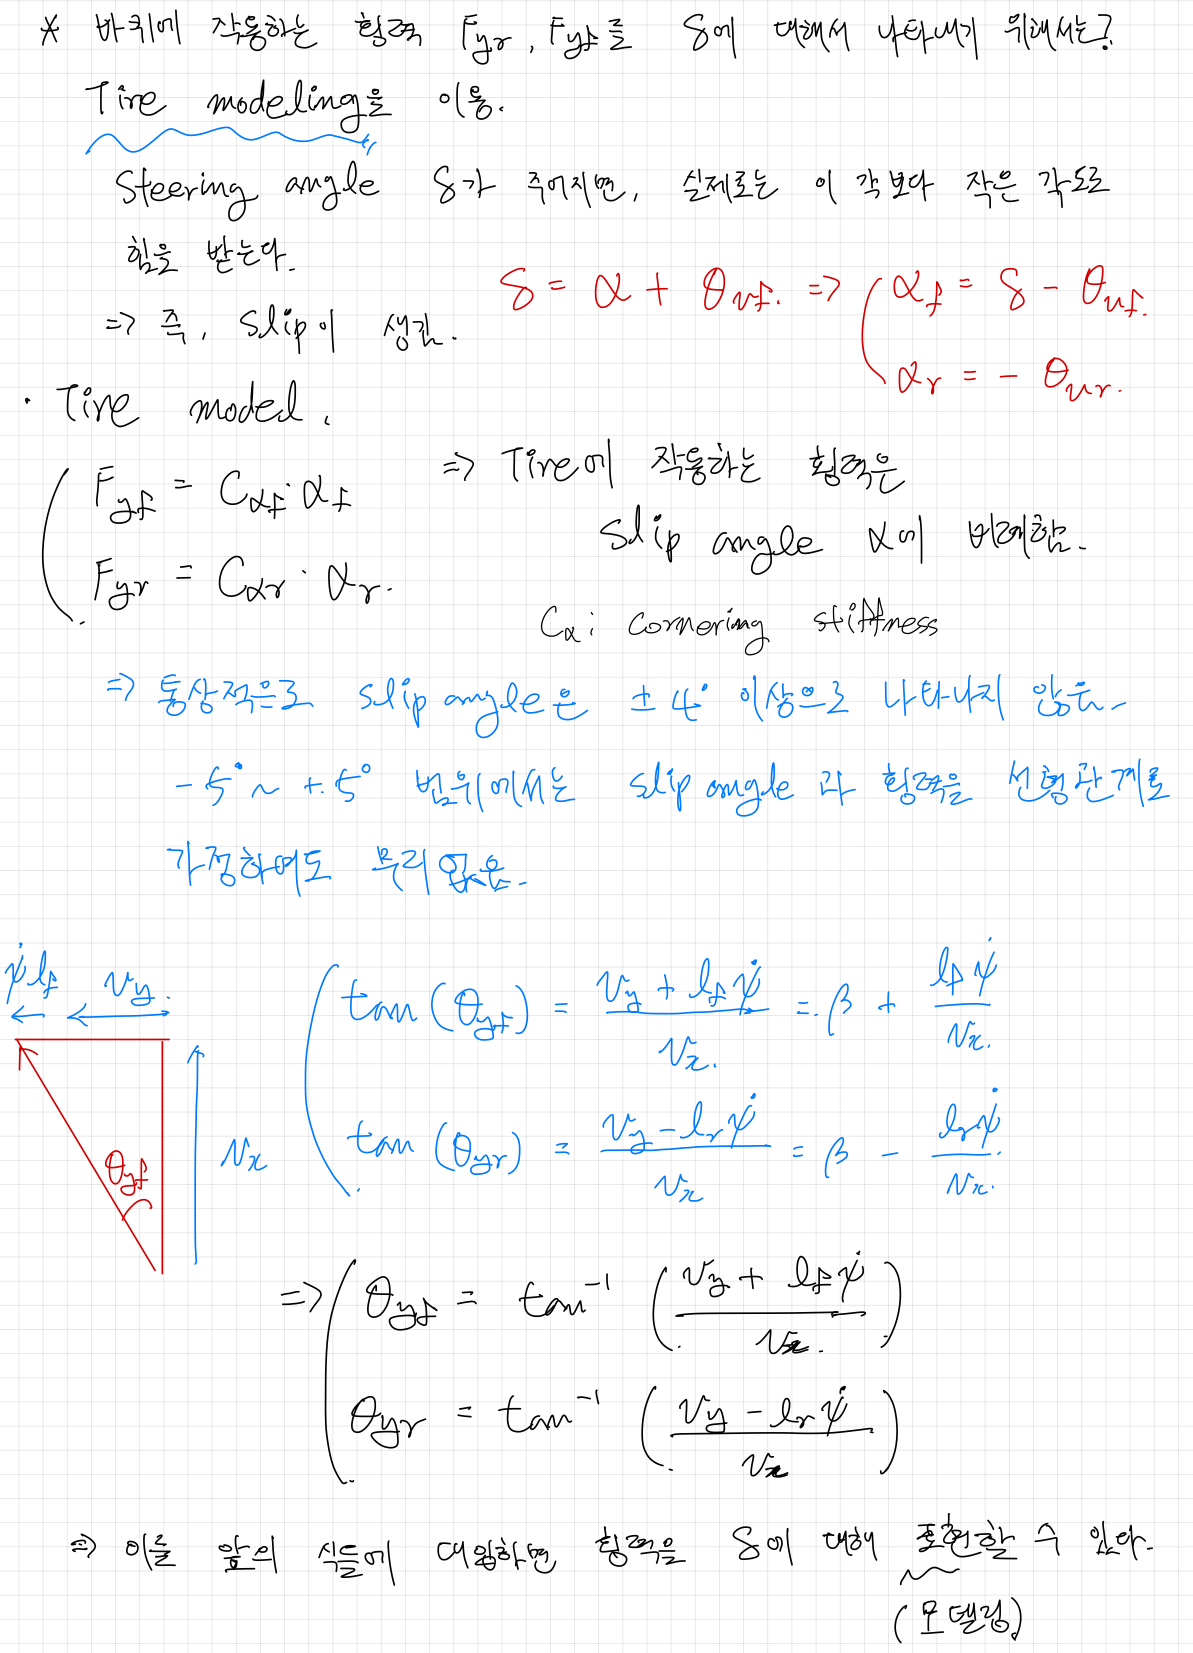 * 바퀴에 작용하는 횡력 Fyr, Fyf를 δ에 대해서 나타내기 위해서는?
Tire modeling을 이용.
Steering angle δ가 주어지면, 실제로는 이 각보다 작은 각도로
힘을 받는다.
⇒ 즉, slip이 생김.
δ = α + θvf. ⇒ ( αf = δ - θvf.
αr = - θvr.
· Tire model.
( Fyf = Cαf · αf
Fyr = Cαr · αr.
⇒ Tire에 작용하는 횡력은
slip angle α에 비례함.
Cα : cornering stiffness
⇒ 통상적으로 slip angle은 ± 4° 이상으로 나타나지 않음.
-5° ~ +5° 범위에서는 slip angle과 횡력을 선형관계로
가정하여도 무리없음.
ψ̇lf vy.
vx
θyf
( tan(θyf) = (vy + lf ψ̇)/vx. = β + lf ψ̇/vx.
tan(θyr) = (vy - lr ψ̇)/vx = β - lr ψ̇/vx.
⇒ ( θyf = tan⁻¹ ( (vy + lf ψ̇)/vx. )
θyr = tan⁻¹ ( (vy - lr ψ̇)/vx )
⇒ 이를 앞의 식들에 대입하면 횡력을 δ에 대해 표현할 수 있다.
(모델링)